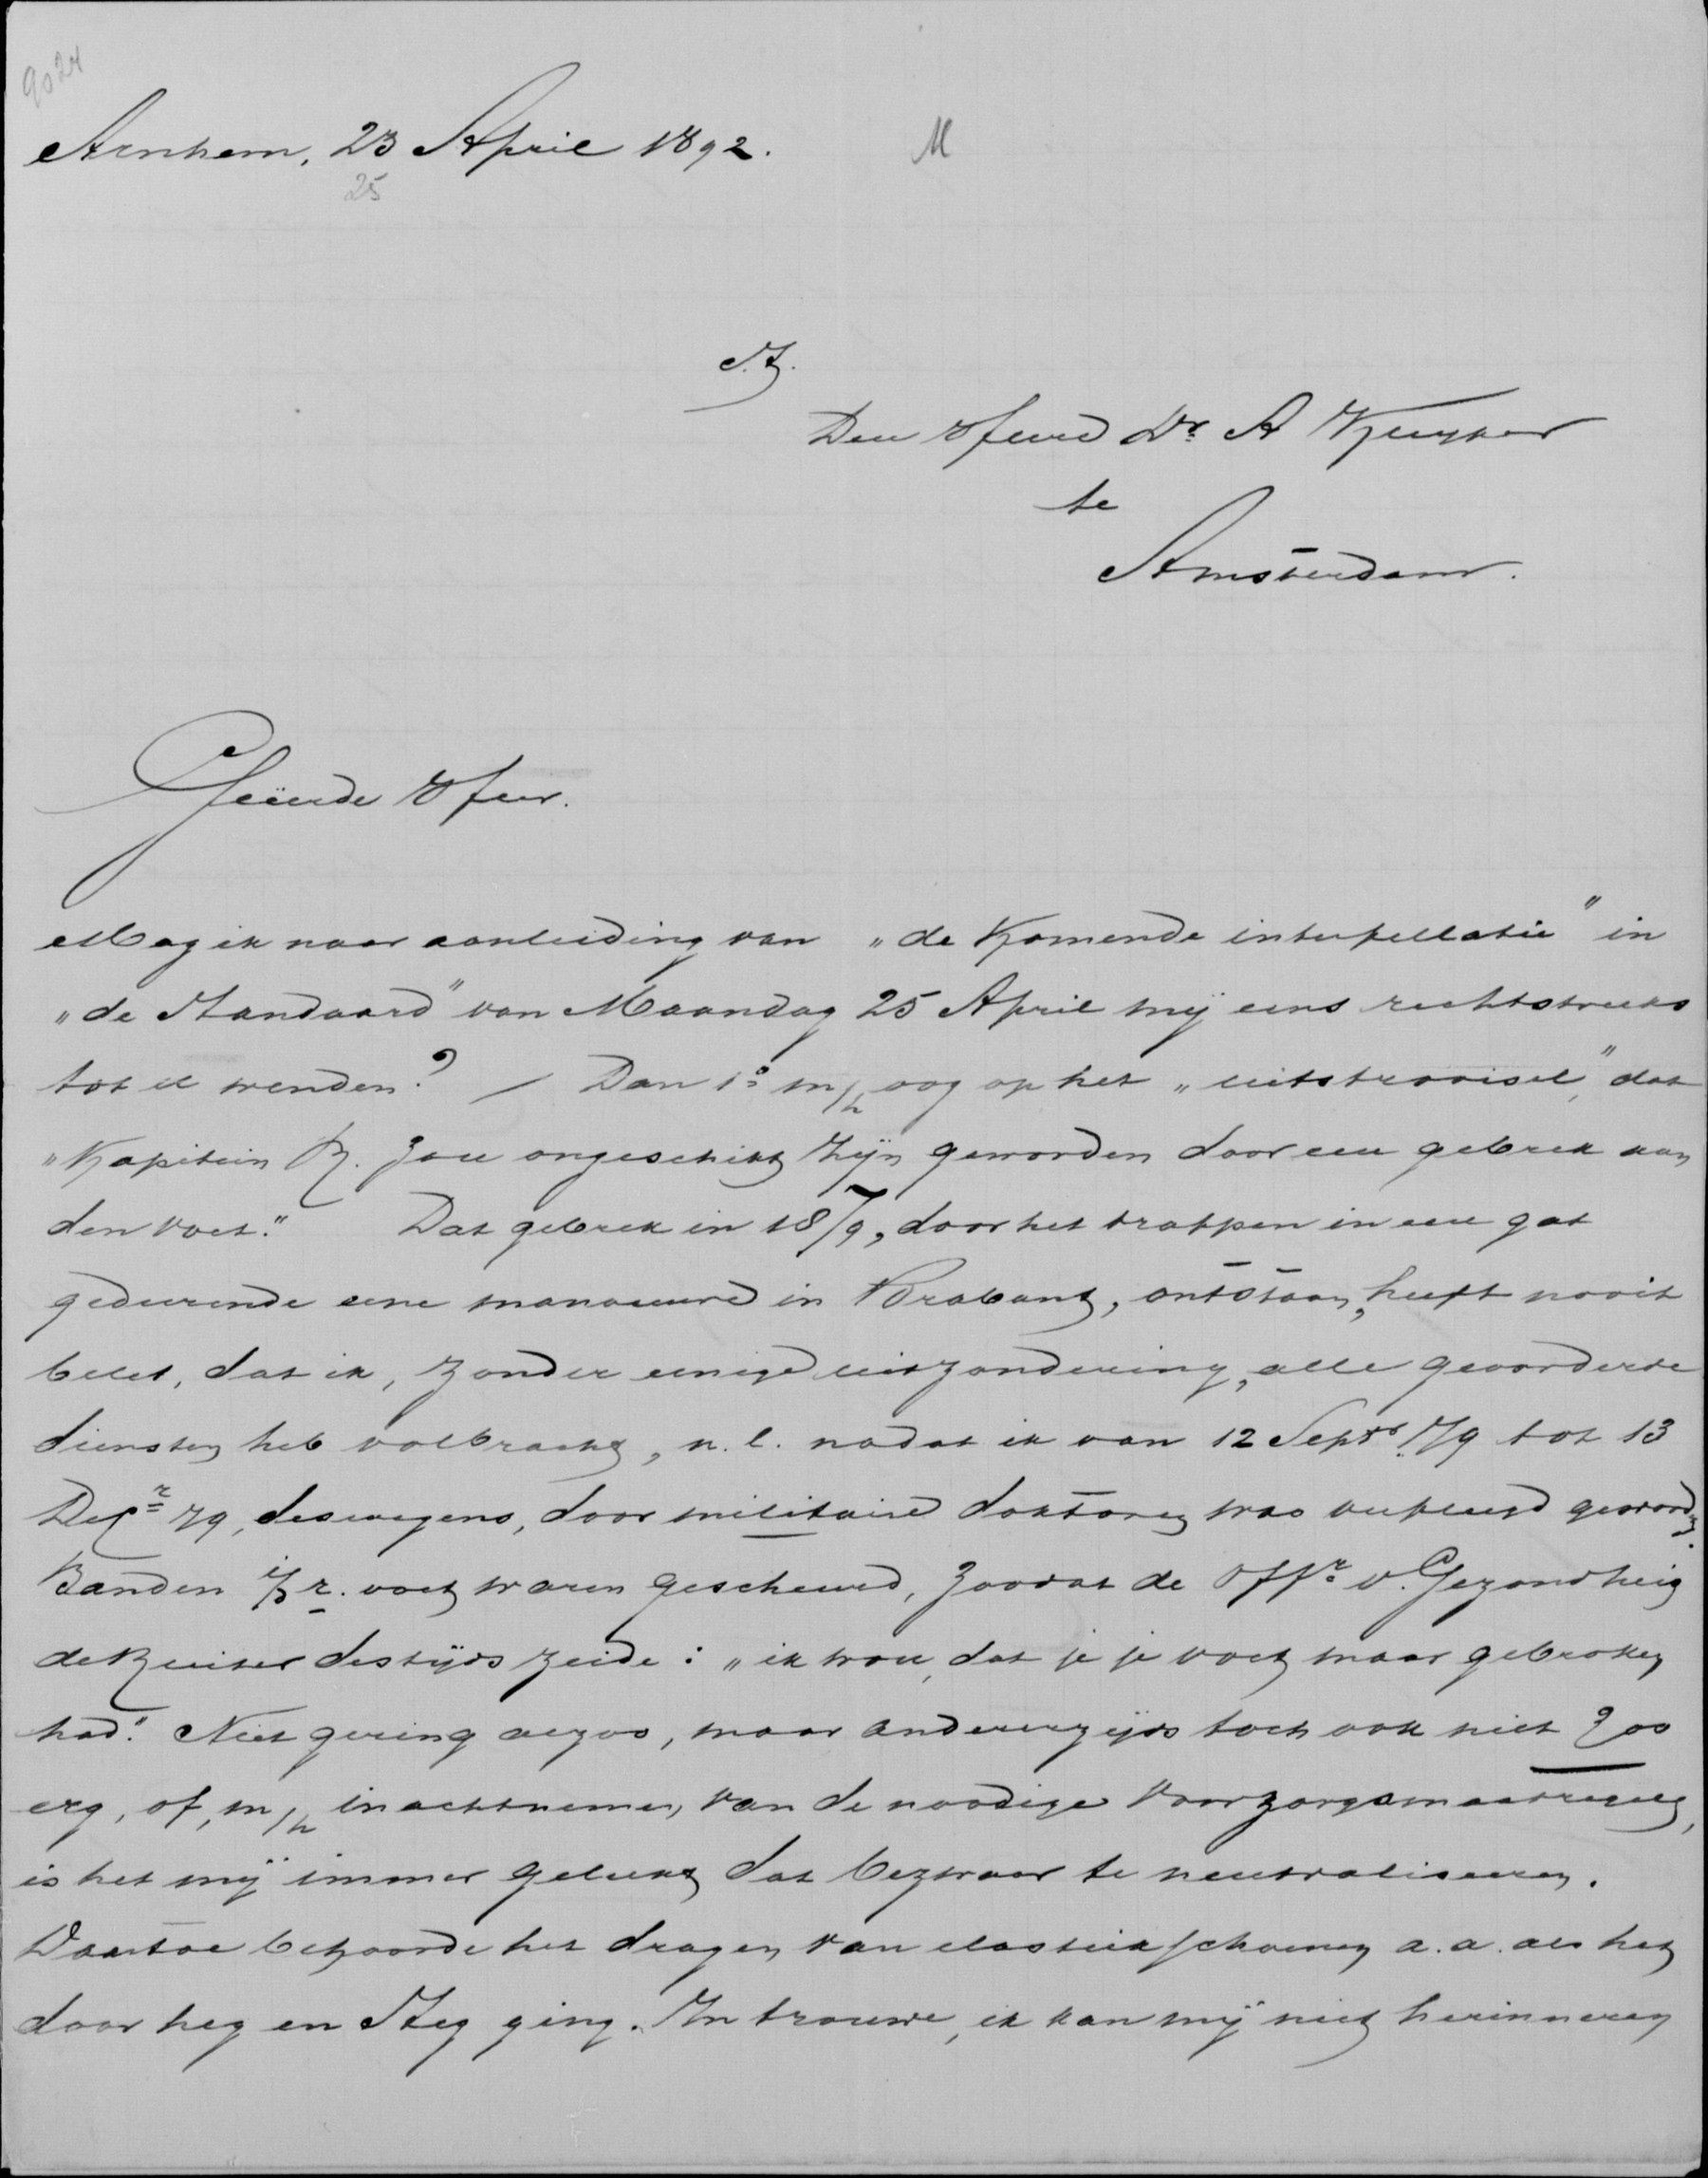 9024
Arnhem, 23 April 1892. M
25
S.T.
Den Heere Dr. A Kuyper
te
Amsterdam.
Geëerde Heer.
Mag ik naar aanleiding van „de komende interpellatie" in
„de Standaard" van Maandag 25 April mij eens rechtstreeks
tot U wenden? / Dan 1º m/h oog op het „uitstrooisel", dat
„Kapitein R. zou ongeschikt zijn geworden door een gebrek aan
den voet." Dat gebrek in 1879, door het trappen in een gat
gedurende eene manoeuvre in Brabant, ontstaan, heeft nooit
belet, dat ik, zonder eenige uitzondering, alle gevorderde
diensten heb volbracht, n.l. nadat ik van 12 Septr. 79 tot 13
Decr 79, deswegens, door militaire doktoren was verpleegd geworden.
Banden i/d r. voet waren gescheurd, zoodat de Offr v. Gezondheid
de Ruiter destijds zeide: „ik wou, dat je je voet maar gebroken
had." Niet gering alzoo, maar anderzijds toch ook niet zoo
erg, of, m/h inachtnemen, van de noodige voorzorgsmaatregelen,
is het mij immer gelukt dat bezwaar te neutraliseeren.
Daartoe behoorde het dragen van elastiekschoenen a.a. als het
door heg en steg ging. In trouwe, ik kan mij niet herinneren